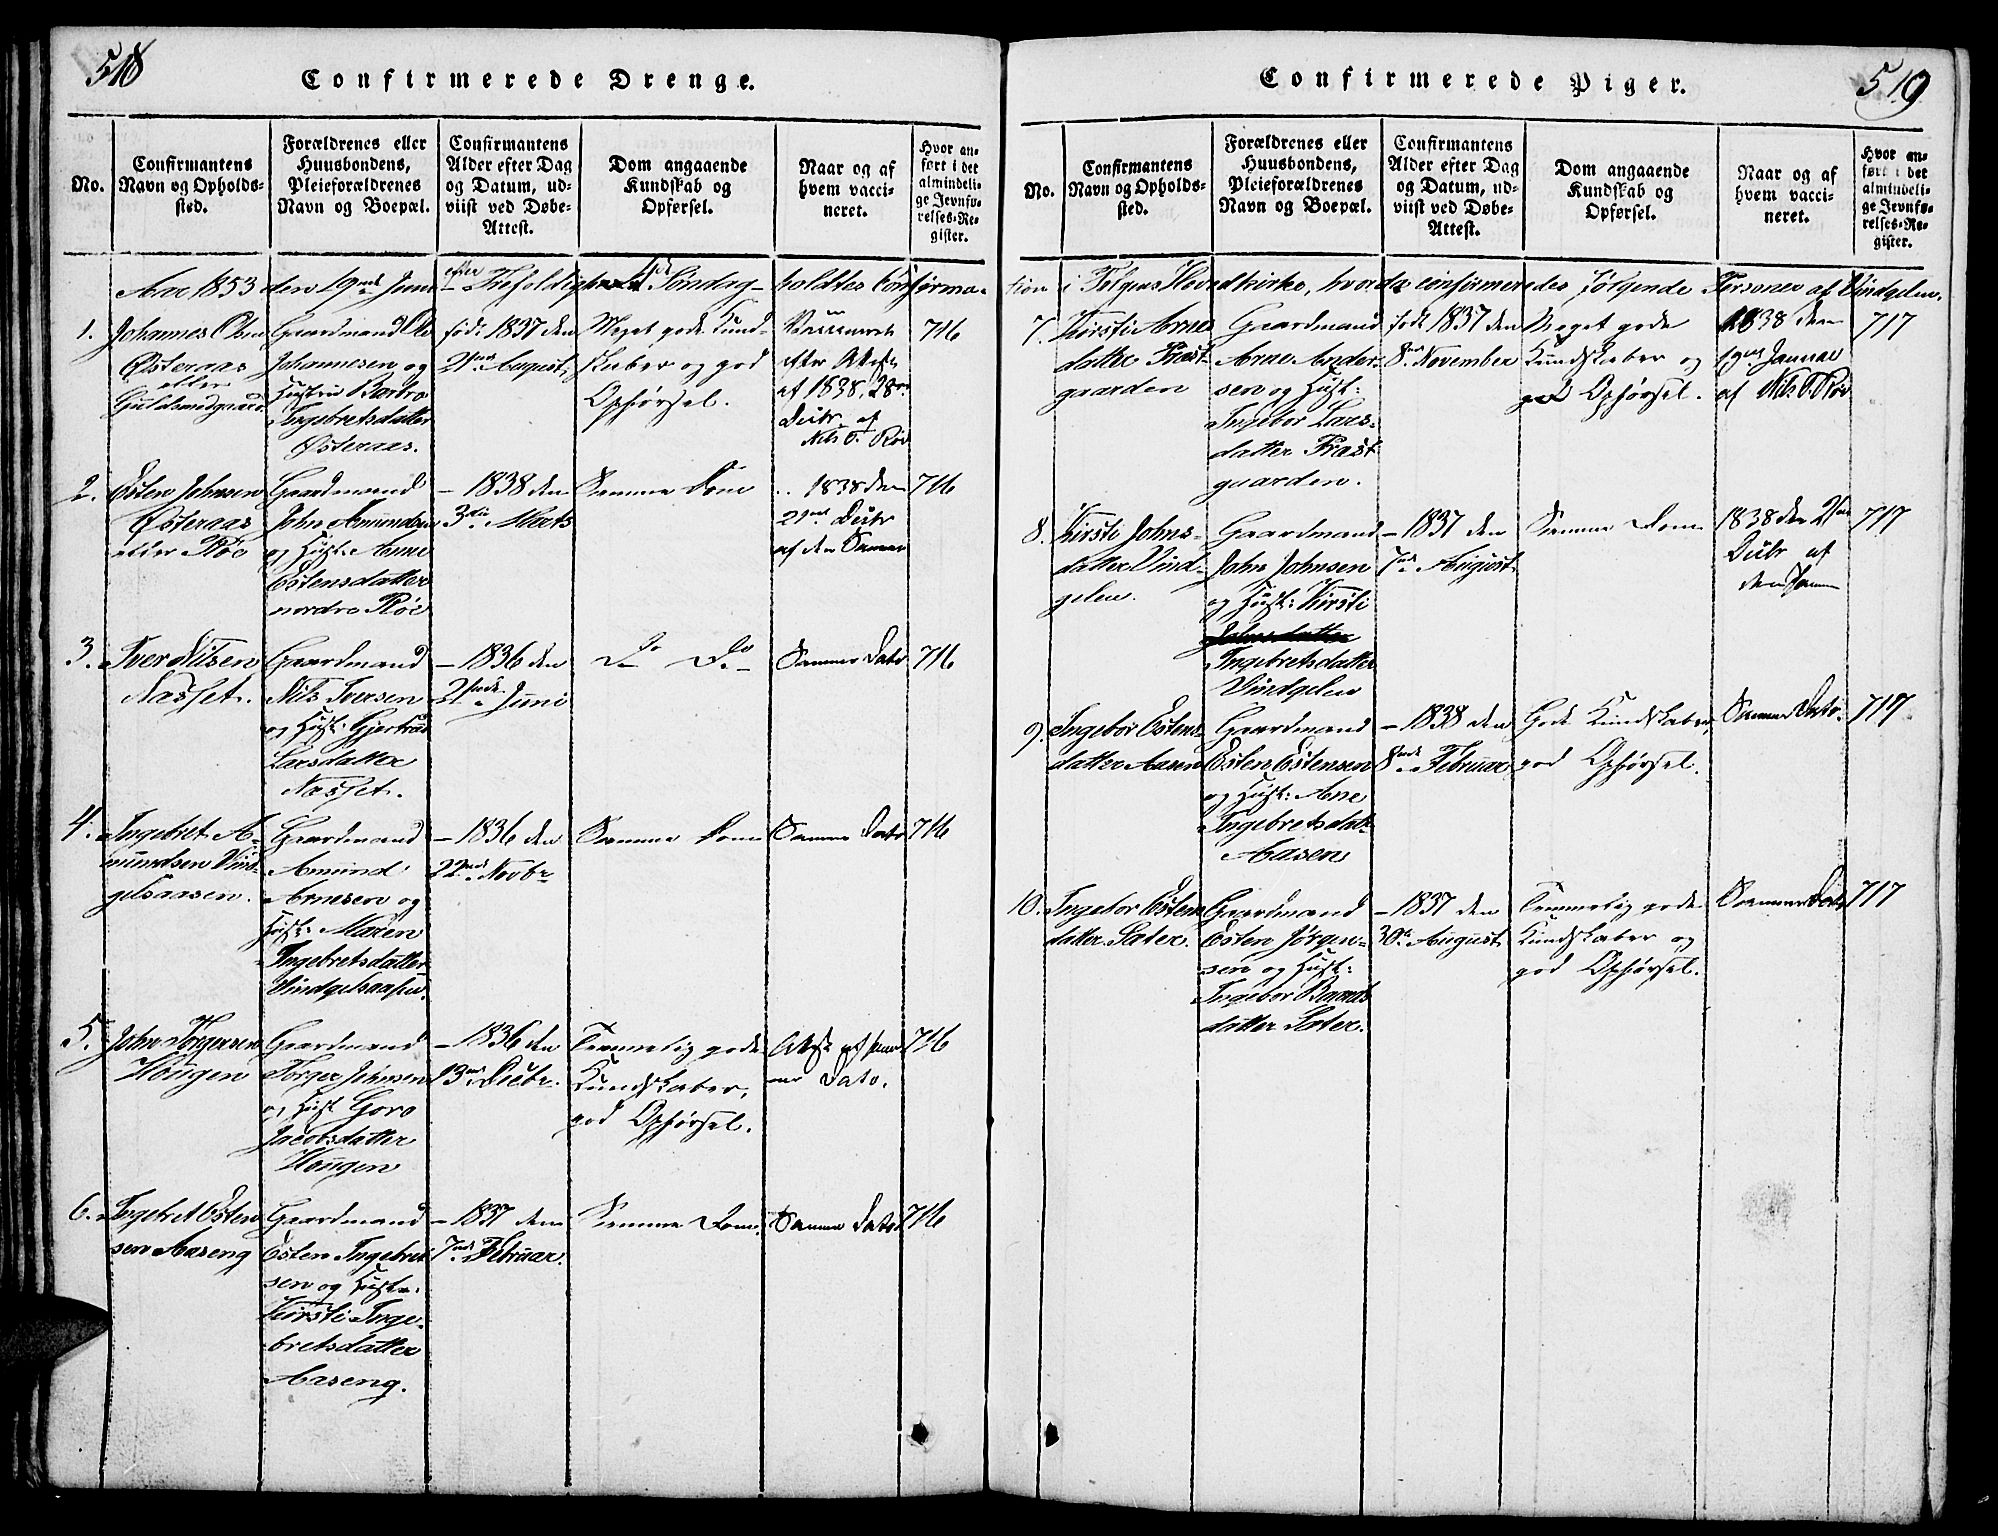 518
Confirmerede Drenge.
No.
Confirmantens
Navn og Opholds-
sted.
Forældrenes eller
Huusbondens,
Pleieforældrenes
Navn og Boepæl.
Confirmantens
Alder efter Dag
og Datum, ud-
viist ved Døbe-
Attest.
Dom angaaende
Kundskab og
Opførsel.
Naar og af
hvem vacci-
neret.
Hvor an-
ført i det
almindeli-
ge Jevnfø-
relses-Re-
gister.
Aar 1853 den 19de Juni efter Trefoldigheds Søndag holdtes Confirma-
1.
Johannes Olsen
Østeraas
eller
Guldsmedgaard
Gaardmand Ole
Johannesen og
Hustru Barbro
Ingebretsdatter
Østeraas.
født 1837 den
21de August.
Meget gode Kund-
skaber og god
Opførsel.
Vaccineret
efter Attest
af 1838, 28de
Decbr. af
Nils O. Røe
716
2.
Esten Johnsen
Østeraas
eller Røe
Gaardmand
John Amundsen
og Hust: Anne
Estensdatter
nordre Røe
- 1838 den
3die Marts
Samme Dom
1838 den
29de Decbr
af den Samme
716
3.
Iver Nilsen
Næsset.
Gaardmand
Nils Iversen
og Hust: Gjertrud
Larsdatter
Næsset.
- 1836 den
21de Juni
Do Do
Samme Dato
716
4.
Ingebret A-
mundsen Vind-
gelsaasen.
Gaardmand
Amund
Arnesen og
Hust: Maren
Ingebretsdatter
Vindgelsaasen.
- 1836 den
22de Novbr
Samme Dom
Samme Dato
716
5.
John Torgersen
Hougen
Gaardmand
Torger Johnsen
og Hust Goro
Jacobsdatter
Hougen
- 1836 den
13de Decbr.
Temmelig gode
Kundskaber,
god Opførsel.
Attest af sam-
me Dato.
716
6.
Ingebret Esten
sen Aaseng
Gaardmand
Esten Ingebret
sen og Hustr:
Kirsti Inge-
bretsdatter
Aaseng.
- 1837 den
7de Februar.
Samme Dom.
Samme Dato
716
519
Confirmerede Piger.
No.
Confirmantens
Navn og Opholds-
sted.
Forældrenes eller
Huusbondens,
Pleieforældrenes
Navn og Boepæl.
Confirmantens
Alder efter Dag
og Datum, ud-
viist ved Døbe-
Attest.
Dom angaaende
Kundskab og
Opførsel.
Naar og af
hvem vacci-
neret.
Hvor an-
ført i det
almindeli-
ge Jevnfø-
relses-Re-
gister.
tion i Tolgens Hovedkirke, hvorda confirmeredes følgende Personer af Vindgelen.
7.
Kirsti Arne
datter Præst-
gaarden
Gaardmand
Arne Ander-
sen og Hust:
Ingebor Lars-
datter Præst
gaarden.
født 1837 den
8de November
Meget gode
Kundskaber og
god Opførsel.
1838 den
19de Januar
af Nils O. Røe
717
8.
Kirsti Johns-
datter Vind-
gelen.
Gaardmand
John Johnsen
og Hust: Kirsti
Johnsdatter
Ingebretsdatter
Vindgelen
- 1837 den
7de August.
Samme Dom
1838 den 21de
Decbr af
den Samme
717
9.
Ingebor Estens-
datter Aasen
Gaardmand
Esten Estensen
og Hust: Ane
Ingebretsdatt
Aasen
- 1838 den
8de Februar
Gode Kundskaber,
god Opførsel.
Samme Dato.
717
10.
Ingebor Estens
datter Sæter.
Gaardmand
Esten Jørgen-
sen og Hust:
Ingebor Baards
datter Sæter.
- 1837 den
30te August
Temmelig gode
Kundskaber og
god Opførsel.
Samme Dato
717